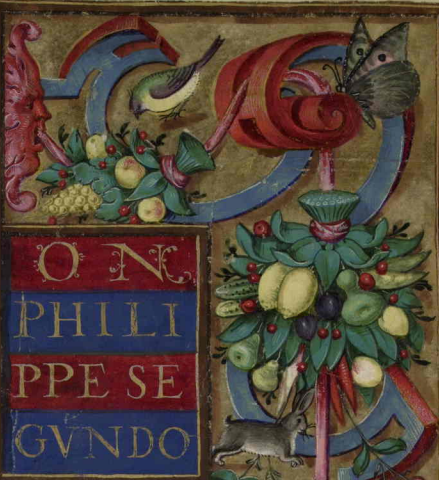 ON
PHILI
PPE SE
GVNDO